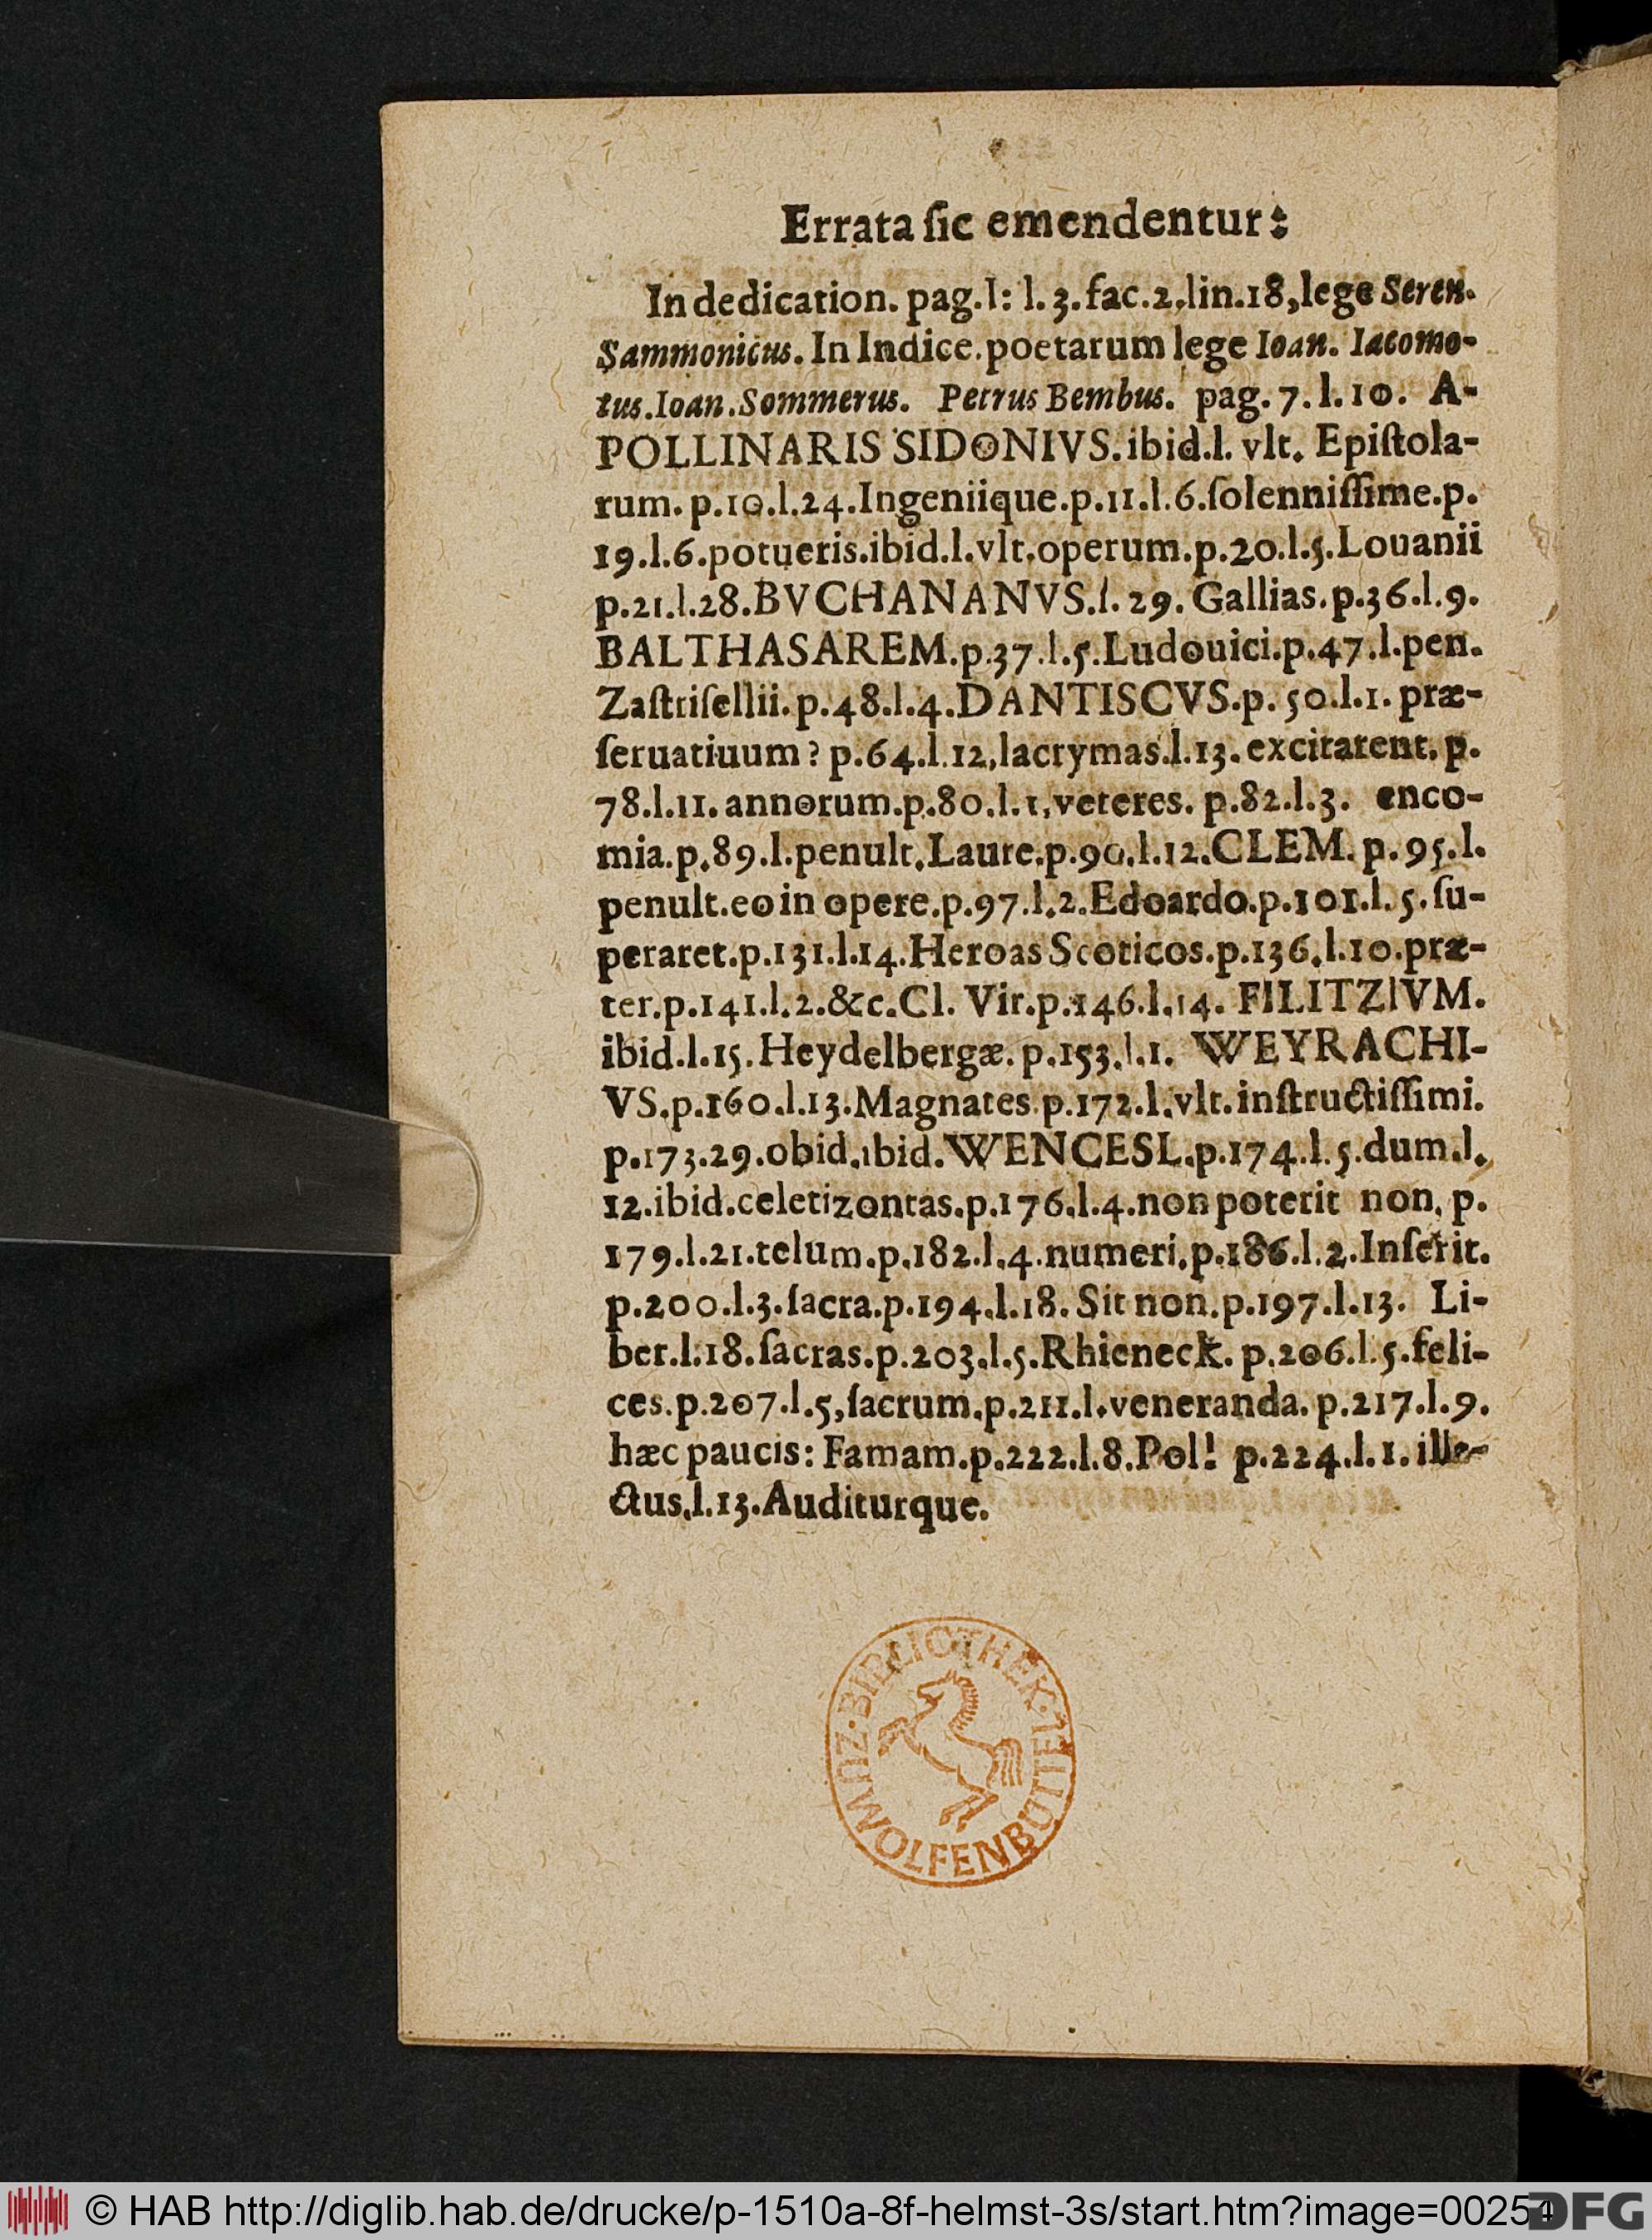 Errata ſic emendentur:
In dedication. pag. I: l. 3. fac. 2, lin. 18, lege Seren.
Sammonicus. In Indice. poetarum lege Ioan. Iacomo-
tus. Ioan. Sommerus. Petrus Bembus. pag. 7. l. 10. A-
POLLINARIS SIDONIVS. ibid. l. vlt. Epiſtola-
rum. p. 10. l. 24. Ingeniique. p. 11. l. 6. ſolenniſſime. p.
19. l. 6. potueris. ibid. l. vlt. operum. p. 20. l. 5. Louanii
p. 21. l. 28. BVCHANANVS. l. 29. Gallias. p. 36. l. 9.
BALTHASAREM. p. 37. l. 5. Ludouici. p. 47. l. pen.
Zaſtriſellii. p. 48. l. 4. DANTISCVS. p. 50. l. 1. præ-
ſeruatiuum? p. 64. l. 12, lacrymas. l. 13. excitarent. p.
78. l. 11. annorum. p. 80. l. 1, veteres. p. 82. l. 3. enco-
mia. p. 89. l. penult. Laure. p. 90. l. 12. CLEM. p. 95. l.
penult. eo in opere. p. 97. l. 2. Edoardo. p. 101. l. 5. ſu-
peraret. p. 131. l. 14. Heroas Scoticos. p. 136. l. 10. præ-
ter. p. 141. l. 2. &c. Cl. Vir. p. 146. l. 14. FILITZIVM.
ibid. l. 15. Heydelbergæ. p. 153. l. 1. WEYRACHI-
VS. p. 160. l. 13. Magnates. p. 172. l. vlt. inſtructiſſimi.
p. 173. 29. obid. ibid. WENCESL. p. 174. l. 5. dum. l.
12. ibid. celetizontas. p. 176. l. 4. non poterit non. p.
179. l. 21. telum. p. 182. l. 4. numeri. p. 186. l. 2. Inſerit.
p. 200. l. 3. ſacra. p. 194. l. 18. Sit non. p. 197. l. 13. Li-
ber. l. 18. ſacras. p. 203. l. 5. Rhieneck. p. 206. l. 5. feli-
ces. p. 207. l. 5, ſacrum. p. 211. l. veneranda. p. 217. l. 9.
hæc paucis: Famam. p. 222. l. 8. Pol! p. 224. l. 1. ille-
ctus. l. 13. Auditurque.
BIBLIOTHEK
WOLFENBUTTEL
© HAB http://diglib.hab.de/drucke/p-1510a-8f-helmst-3s/start.htm?image=00254
DFG